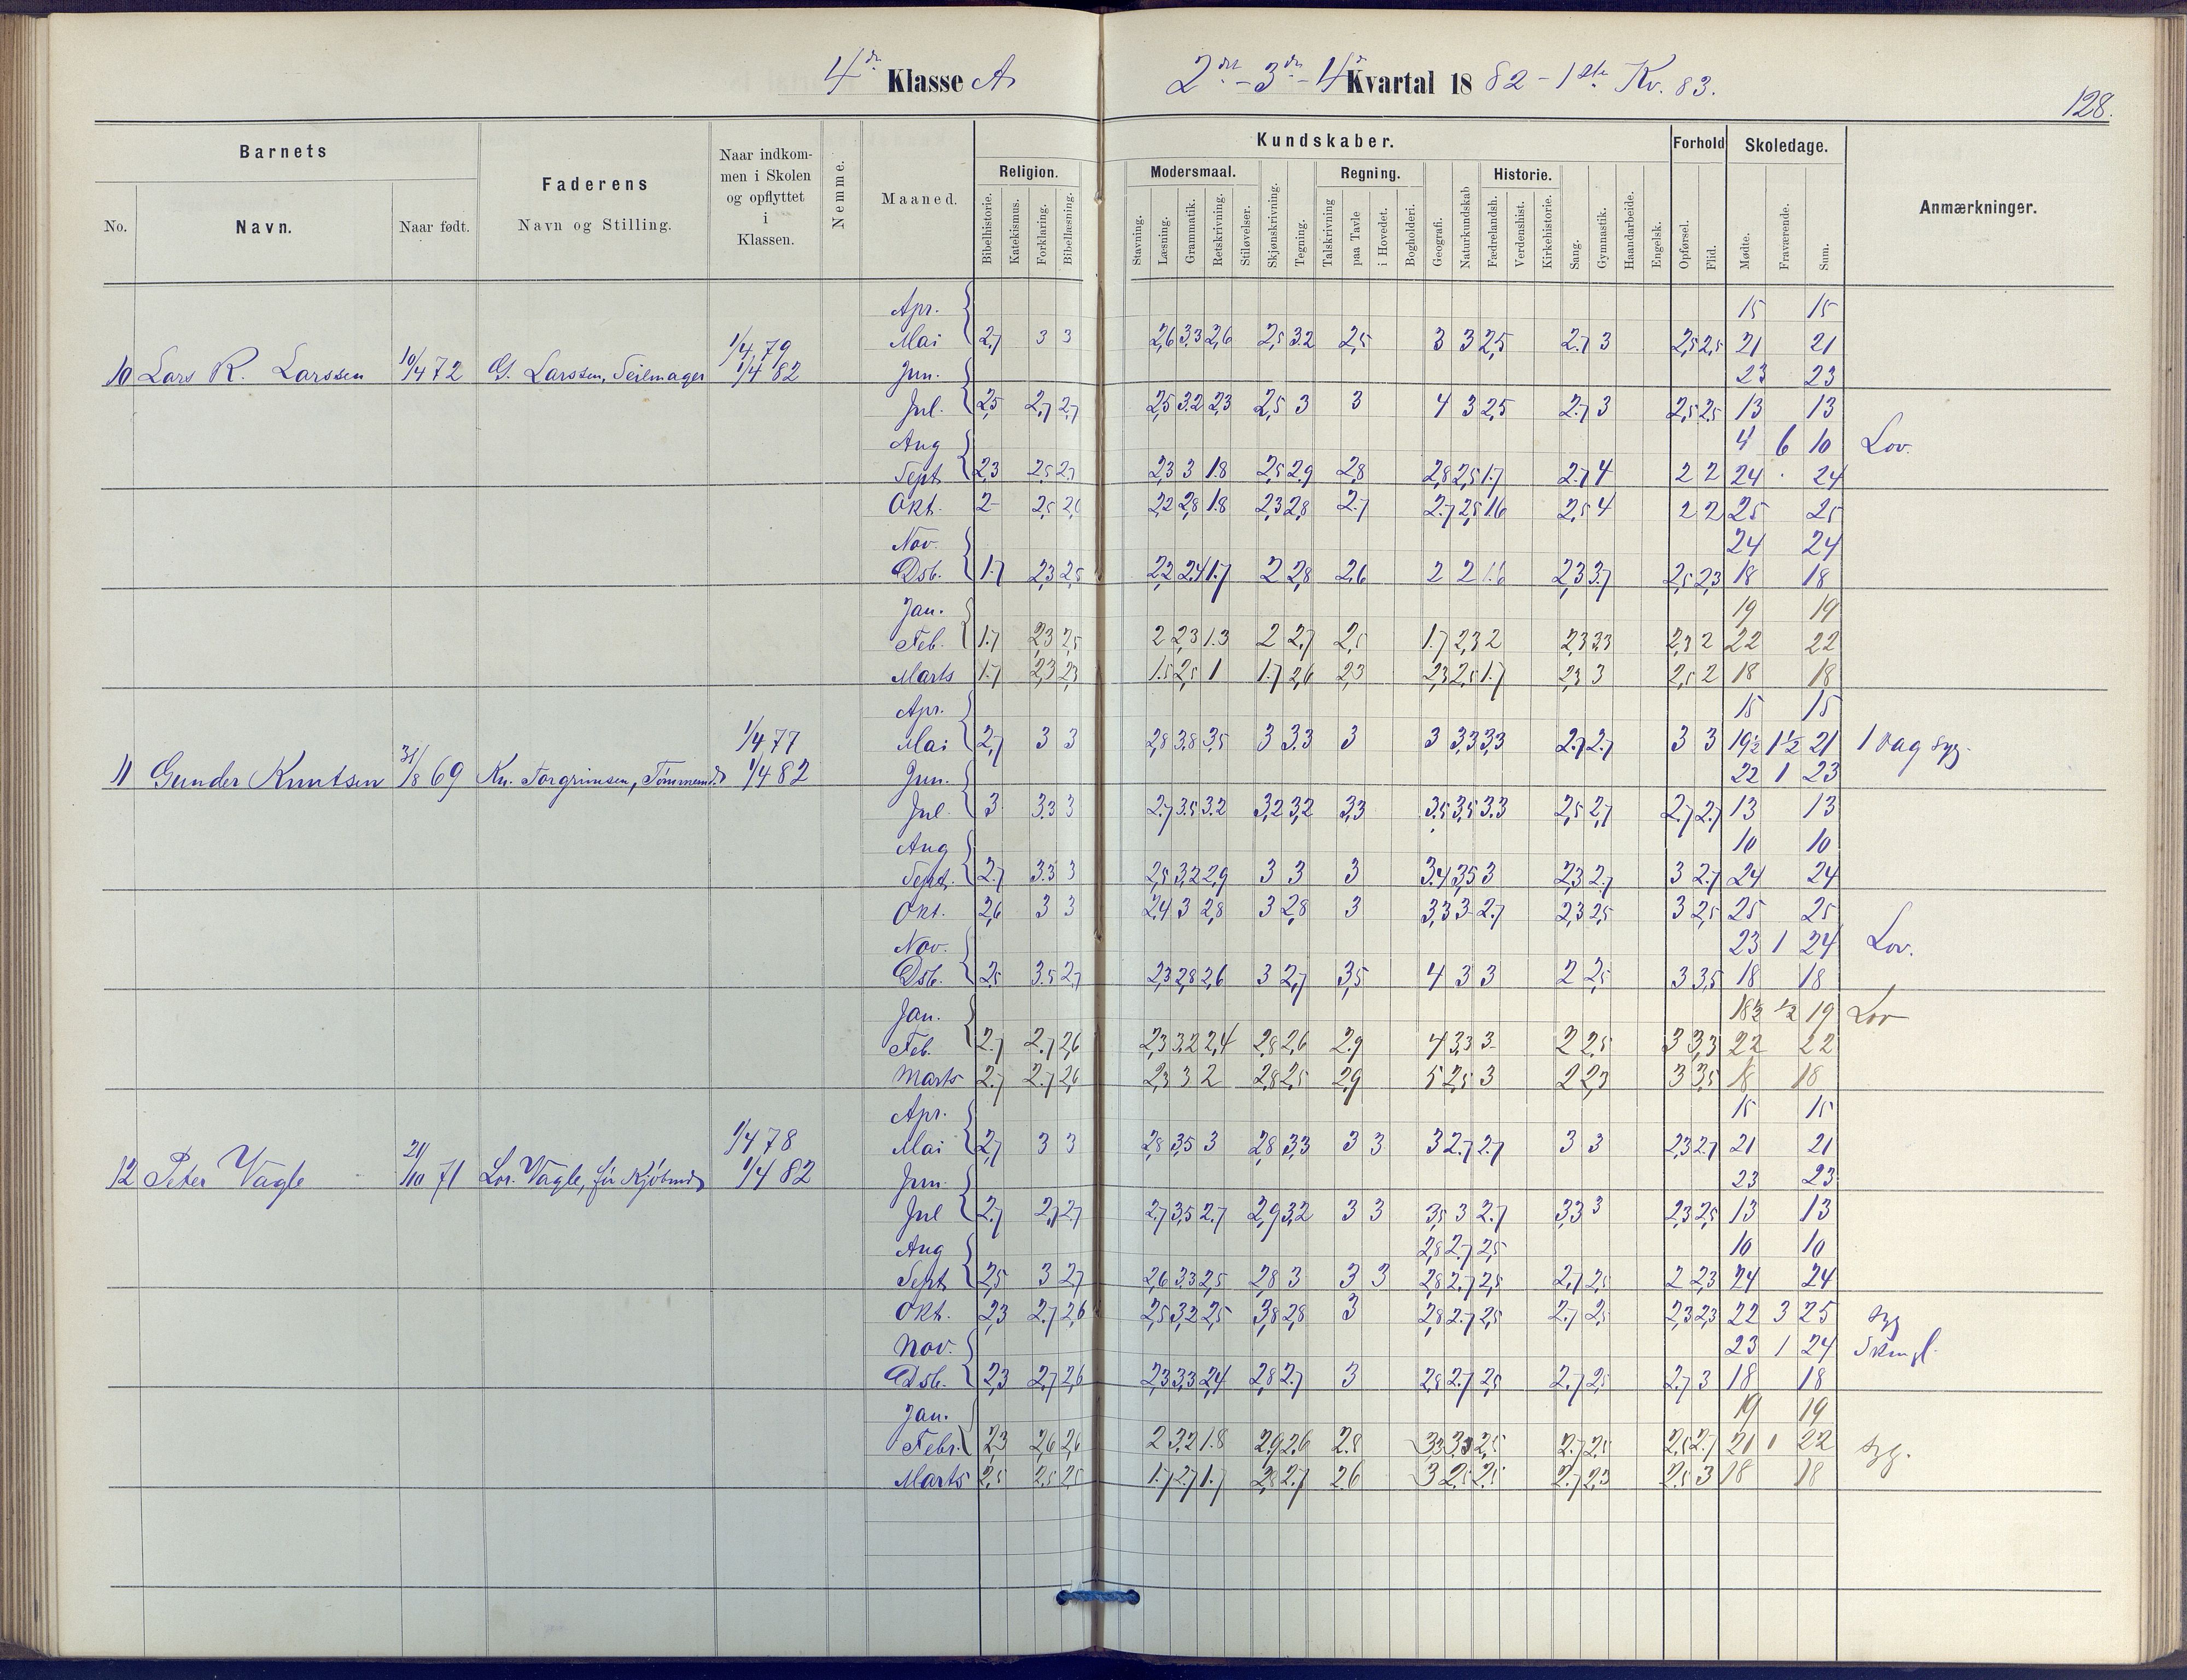 4de Klasse A. 2det - 3de - 4de Kvartal 1882 - 1ste Kv. 83.
128.
Barnets
No.
Navn.
Naar født.
Faderens
Navn og Stilling.
Naar indkom-
men i Skolen
og opflyttet
i
Klassen.
Nemme.
Maaned.
Kundskaber.
Religion.
Bibelhistorie.
Katekismus.
Forklaring.
Bibellæsning.
Modersmaal.
Stavning.
Læsning.
Grammatik.
Retskrivning.
Stiløvelser.
Skjønskrivning.
Tegning.
Regning.
Talskrivning
paa Tavle
i Hovedet.
Bogholderi.
Geografi.
Naturkundskab
Historie.
Fædrelandsh.
Verdenshist.
Kirkehistorie.
Sang.
Gymnastik.
Haandarbeide.
Engelsk.
Forhold
Opførsel.
Flid.
Skoledage.
Mødte.
Fraværende.
Sum.
Anmærkninger.
Apr. 15 15
1/4 79 Mai 2,7 3 3 2,6 3,3 2,6 2,5 3.2 2,5 3 3 2,5 2.7 3 2,5 2,5 21 21
10 Lars R. Larssen 10/4 72 G. Larssen, Seilmager 1/4 82 Jun. 23 23
Jul. 2,5 2,7 2,7 2,5 3.2 2,3 2,5 3 3 4 3 2,5 2.7 3 2,5 2,5 13 13
Aug 4 6 10 Lov.
Sept 2,3 2,5 2,7 2,3 3 1.8 2,5 2.9 2,8 2,8 2,5 1.7 2.7 4 2 2 24 24
Okt. 2 2,5 2,6 2,2 2,8 1.8 2,3 2,8 2.7 2.7 2,5 1.6 2,5 4 2 2 25 25
Nov. 24 24
Dsb. 1.7 2,3 2,5 2,2 2,4 1.7 2 2,8 2,6 2 2 1.6 2,3 3.7 2,5 2,3 18 18
Jan. 19 19
Feb. 1.7 2,3 2,5 2 2,3 1.3 2 2,7 2,5 1.7 2,3 2 2,3 3,3 2,3 2 22 22
Marts 1.7 2,3 2,3 1.5 2,5 1 1.7 2,6 2,3 2,3 2,5 1.7 2,3 3 2,5 2 18 18
Apr. 15 15
1/4 77 Mai 2,7 3 3 2,8 3.8 3,5 3 3.3 3 3 3,3 3,3 2.7 2.7 3 3 19½ 1½ 21 1 dag syg.
11 Gunder Knutsen 31/8 69 Kn. Torgrimsen, Tømmerm. 1/4 82 Jun. 22 1 23
Jul. 3 3.3 3 2.7 3.5 3.2 3,2 3,2 3,3 3.5 3,5 3.3 2,5 2,7 2.7 2.7 13 13
Aug 10 10
Sept. 2.7 3.3 3 2,5 3,2 2,9 3 3 3 3.4 3,5 3 2,3 2.7 3 2.7 24 24
Okt. 2,6 3 3 2,4 3 2,8 3 2,8 3 3,3 3 2.7 2,3 2,5 3 2,5 25 25
Nov. 23 1 24 Lov.
Dsb. 2,5 3.5 2,7 2,3 2,8 2,6 3 2,7 3,5 4 3 3 2 2,5 3 3,5 18 18
Jan. 18½ ½ 19 Lov
Feb. 2.7 2.7 2,6 2,3 3,2 2,4 2,8 2,6 2.9 4 3,3 3 2 2,5 3 3,3 22 22
Marts 2.7 2.7 2,6 2,3 3 2 2,8 2,5 2,9 5 2,5 3 2 2,3 3 3,5 18 18
Apr. 15 15
1/4 78 Mai 2,7 3 3 2,8 3,5 3 2,8 3,3 3 3 3 2.7 2.7 3 3 2,3 2.7 21 21
12 Peter Vagle 21/10 71 Lor. Vagle, før Kjøbmd. 1/4 82 Jun. 23 23
Jul 2.7 2,7 2,7 2,7 3,5 2.7 2,9 3,2 3 3 3,5 3 2.7 3,3 3 2,3 2,5 13 13
Aug 2,8 2.7 2,5 10 10
Sept 2,5 3 2,7 2,6 3,3 2,5 2,8 3 3 3 2,8 2.7 2,5 2.7 2,5 2 2,3 24 24
Okt. 2,3 2.7 2,6 2,5 3,2 2,5 3,8 2,8 3 2,8 2.7 2,5 2.7 2,5 2,3 2,3 22 3 25 syg
Nov. 23 1 24
Dsb. 2,3 2,7 2,6 2,3 3,3 2,4 2,8 2.7 3 2,8 2.7 2,5 2.7 2,5 2.7 3 18 18
Jan. 19 19
Febr. 2,3 2,6 2,6 2 3,2 1.8 2,9 2,6 2.8 3,3 3,3 2,5 2.7 2,5 2,5 2.7 21 1 22 syg.
Marts 2,5 2,5 2,5 1.7 2,7 1.7 2,8 2.7 2.6 3 2,5 2,5 2.7 2,3 2.5 3 18 18